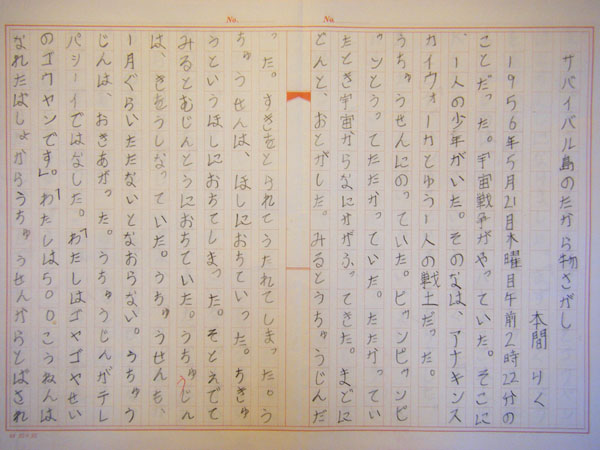 No.
No.
サバイバル島のたから物さがし
本間 りく
1956年5月21日木曜日午前2時22分の
ことだった。宇宙戦争がやっていた。そこに
、1人の少年がいた。そのなは、アナキンス
カイウォーカとゆう1人の戦士だった。
うちゅうせんにのっていた。ピュンピュンピ
ュンとうってたたかっていた。たたかってい
たとき宇宙からなにかがふってきた。まどに
どんと、おとがした。みるとうちゅうじんだ
った。すきをとられてうたれてしまった。う
ちゅうせんは、ほしにおちていった。ちきゅ
うというほしにおちてしまった。そとえでて
みるとむじんとうにおちていた。うちゅじん
は、きをうしなっていた。うちゅうせんも、
1月ぐらいたたないとなおらない。うちゅう
じんは、おきあがった。うちゅうじんがテレ
パシーイではなした。「わたしはゴヤゴヤせい
のゴウヤンです」。「わたしは5.00こうねんは
なれたばしょからうちゅうせんからとばされ